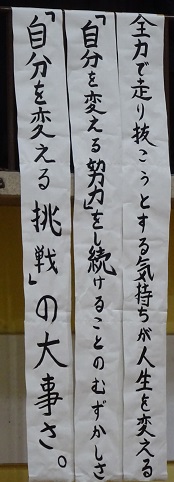 全力で走り抜こうとする気持ちが人生を変える
「自分を変える努力」をし続けることのむずかしさ
「自分を変える挑戦」の大事さ。